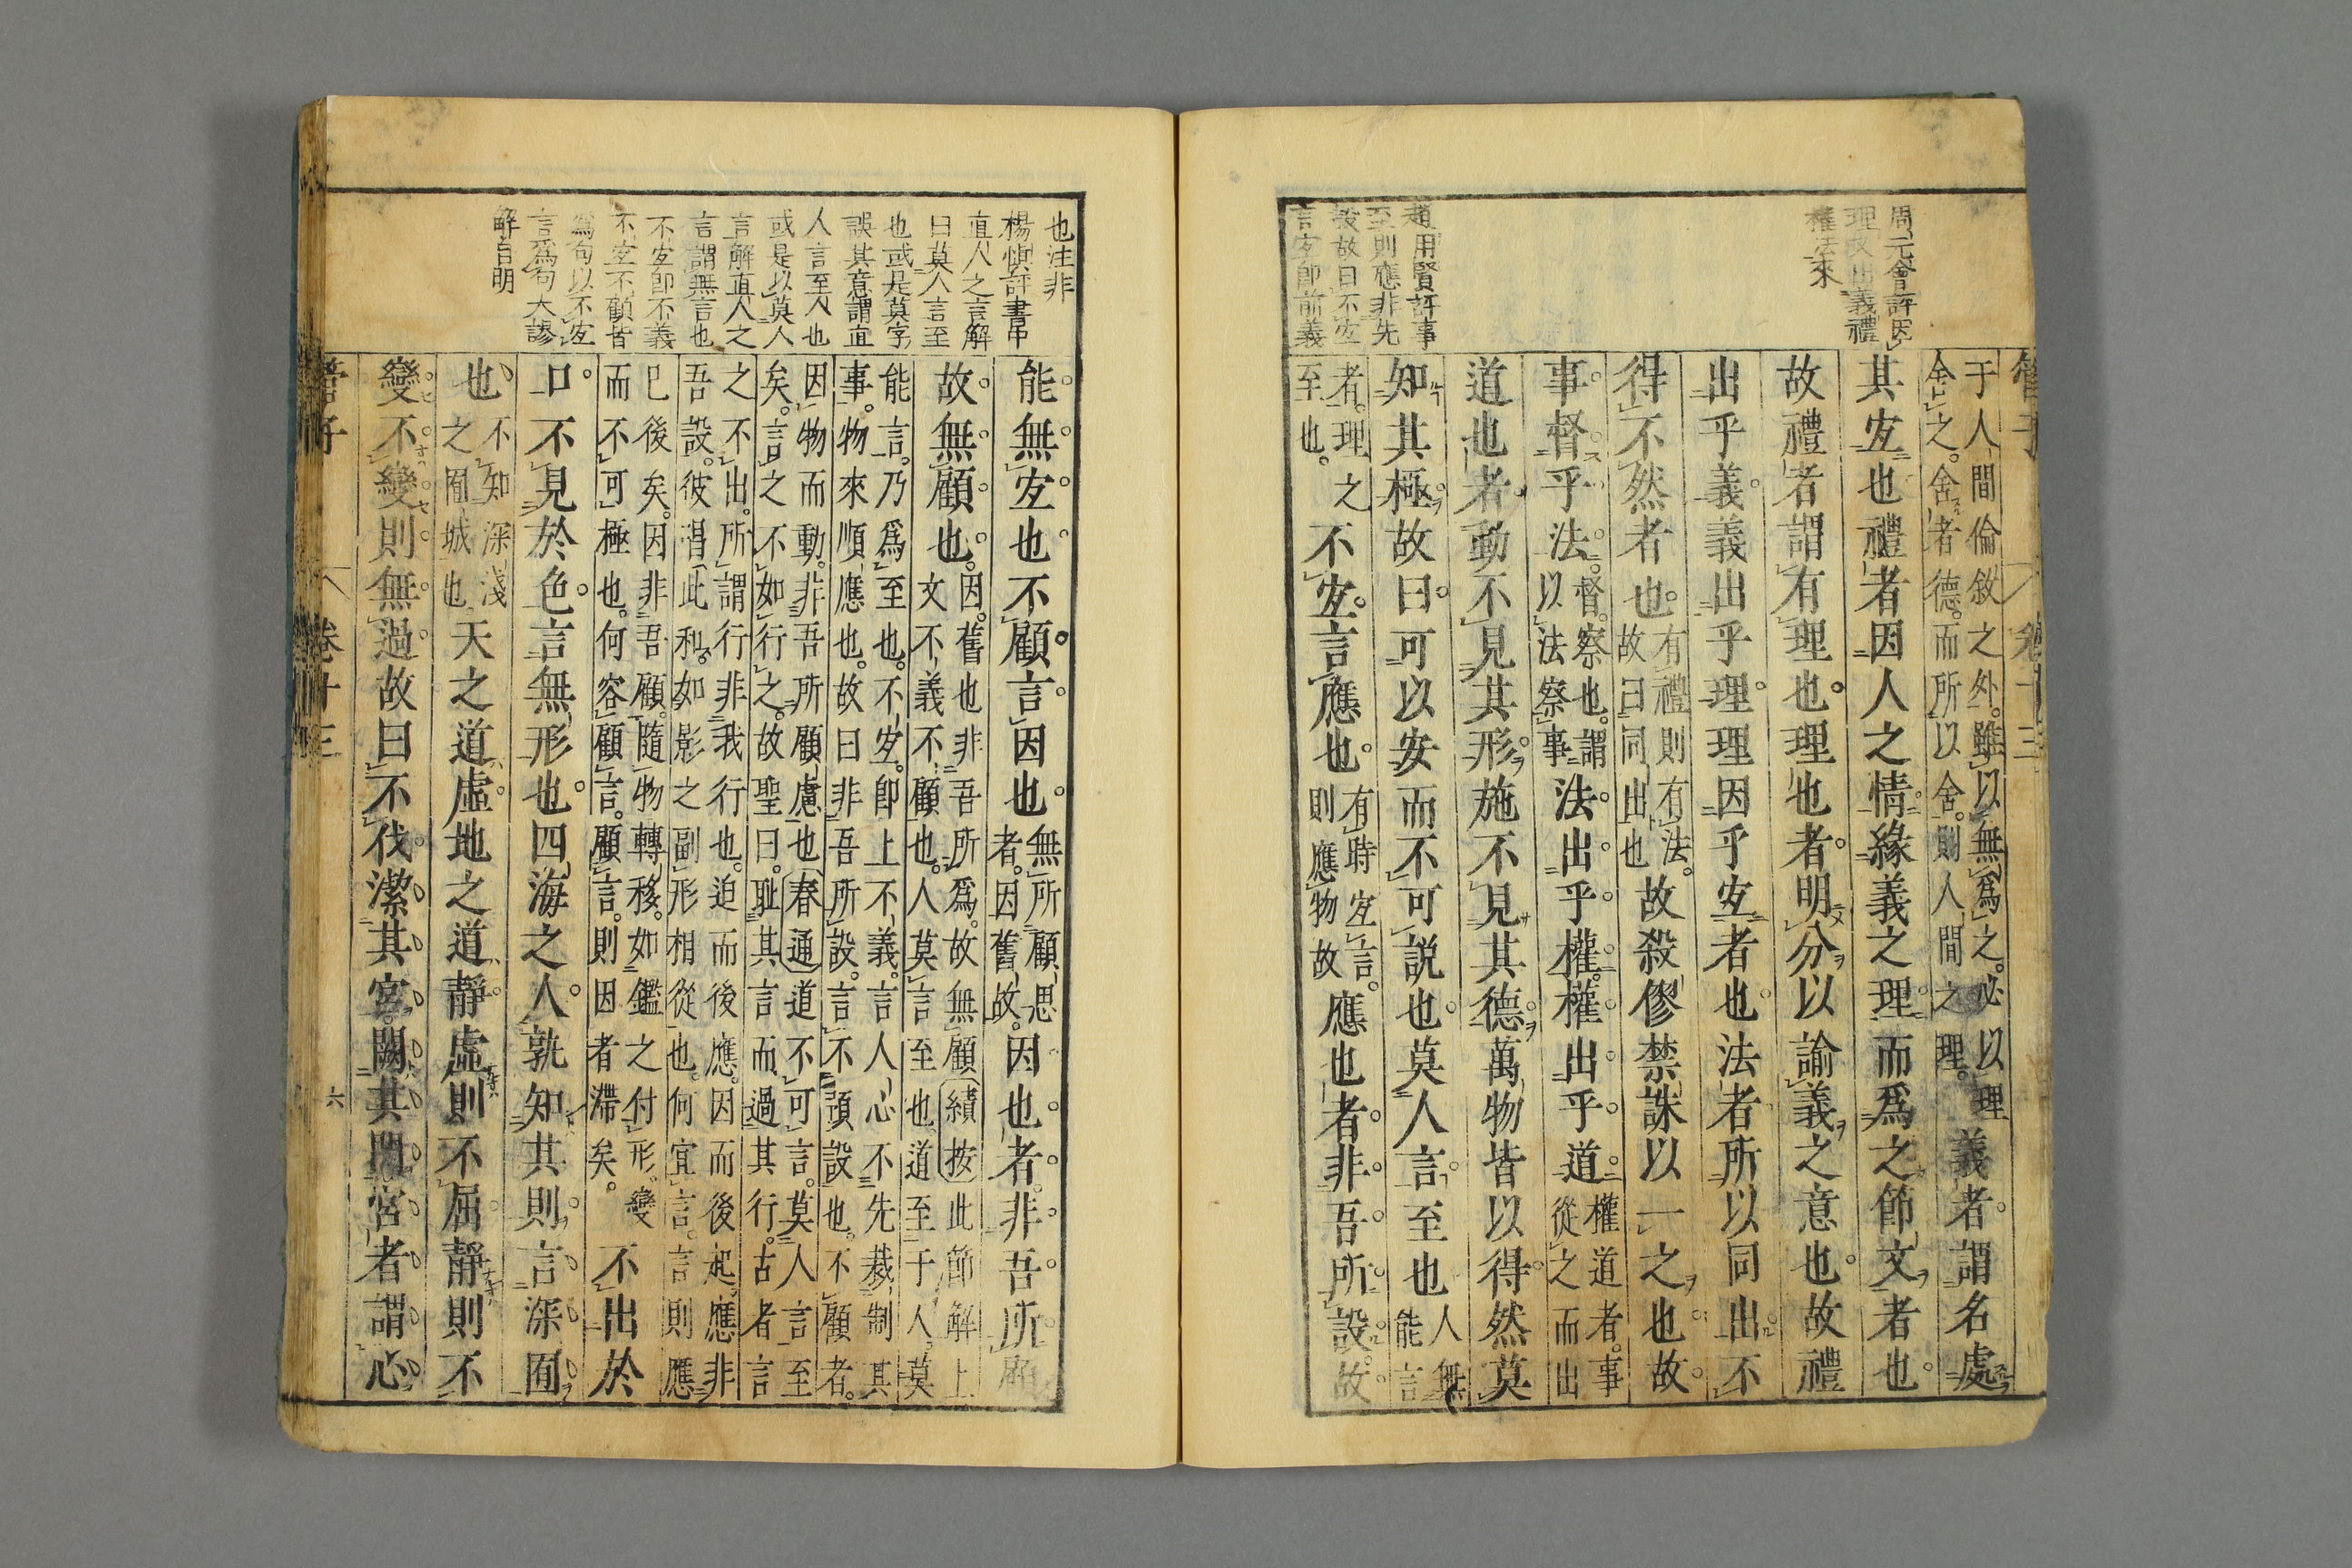 周元會評因
理故出義禮
權法來
趙用賢評事
至則應非先
設故曰不宐
言宐即前義
管子
卷十三
于人間倫敘之外雖以無爲之必以理
舍之舍者德而所以舍則人間之理
義者謂名處
其宐也禮者因人之情緣義之理而爲之節文者也
故禮者謂有理也理也者明分以諭義之意也故禮
出乎義義出乎理理因乎宐者也法者所以同出不
得不然者也
有禮則有法
故曰同出也
故殺僇禁誅以一之也故
事督乎法
督察也謂
以法察事
法出乎權權出乎道
權道者事
從之而出
道也者動不見其形施不見其德萬物皆以得然莫
知其極故曰可以安而不可說也莫人言至也
人無
能言
者理之
至也
不宐言應也
有時宐言
則應物故
應也者非吾所設故
也注非
楊愼評書中
直人之言解
曰莫人言至
也或是莫字
誤其意謂直
人言至人也
或是以莫人
言解直人之
言謂無言也
不宐即不義
不宐不顧皆
爲句以不宐
言爲句大謬
解自明
能無宐也不顧言因也
無所顧思
者因舊故
因也者非吾所顧
故無顧也
因舊也非吾所爲故無顧績按此節解上
文不義不顧也人莫言至也道至于人莫
能言乃爲至也不宐即上不義言人心不先裁制其
事物來順應也故曰非吾所設言不預設也不顧者
因物而動非吾所顧慮也春通道不可言莫人言至
矣言之不如行之故聖曰耻其言而過其行古者言
之不出所謂行非我行也迫而後應因而後起應非
吾設彼㫮此和如影之副形相從也何宜言言則應
已後矣因非吾顧隨物轉移如鑑之付形變
而不可極也何容顧言顧言則因者滯矣
不出於
口不見於色言無形也四海之人孰知其則言深囿
也
不知深淺
之囿城也
天之道虛地之道靜虛則不屈靜則不
變不變則無過故曰不伐潔其宮闕其門宮者謂心
管子
卷十三
六